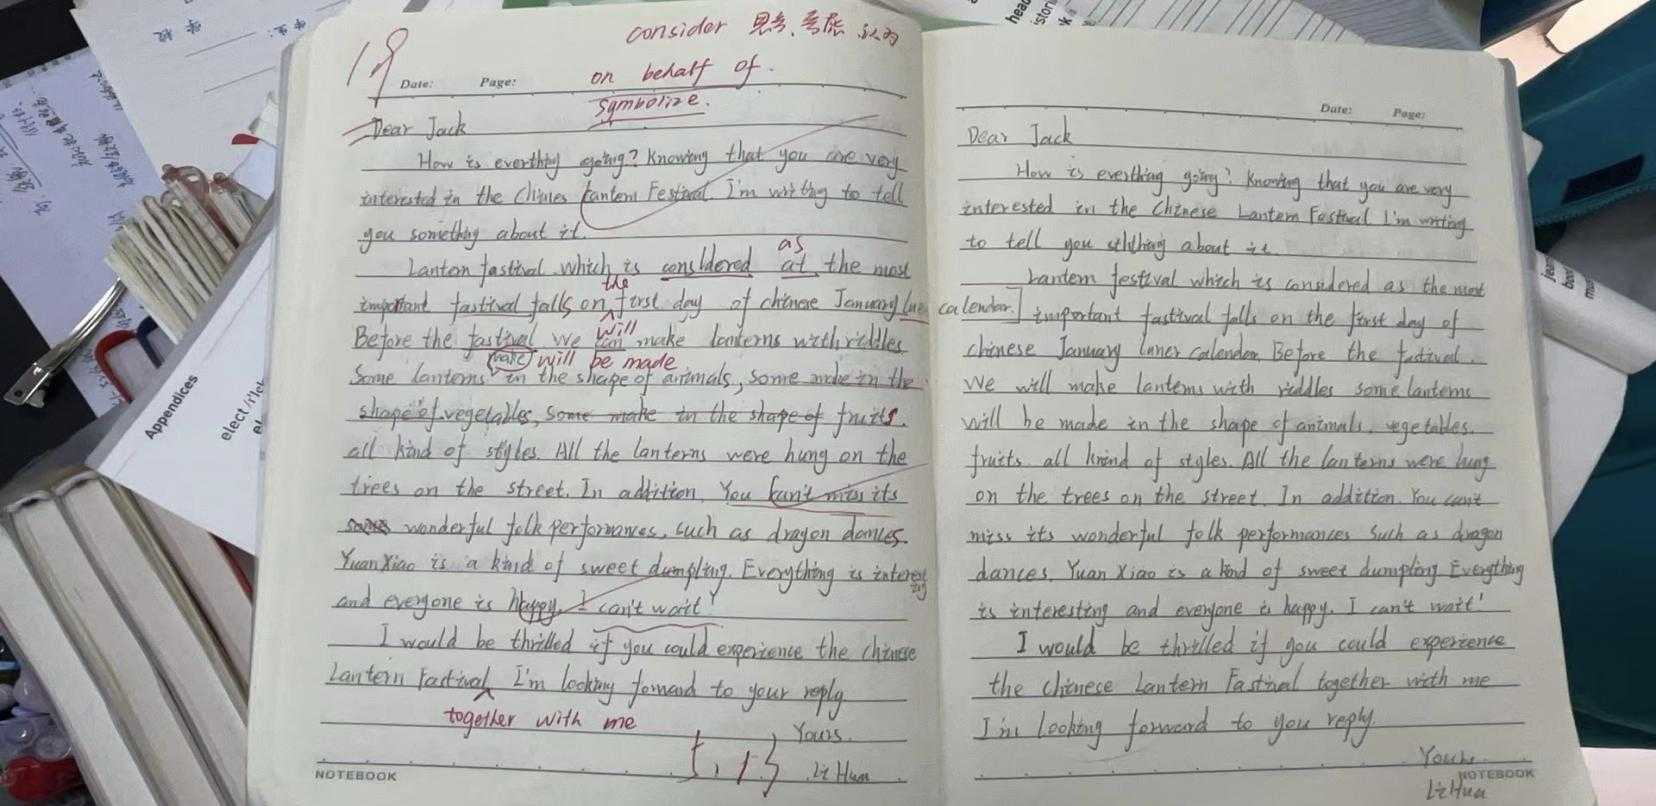 consider 思考、考虑 认为
19
Date: Page:
on behalf of.
symbolize.
Dear Jack
How is everthing going? Knowing that you are very
interested in the Chines Lantern Festival. I'm writing to tell
you something about it.
as
Lantern fastival which is considered at the most
the
important fastival falls on first day of chinese January luner calendar.
will
Before the fastival we can make lanterns with riddles
make will be made
Some lanterns in the shape of animals, some make in the
shape of vegetables, some make in the shape of fruits.
all kind of styles. All the lanterns were hung on the
trees on the street. In addition, You can't miss its
wonderful folk performances, such as dragon dances.
Yuan Xiao is a kind of sweet dumpling. Everything is interesting
and everyone is happy. I can't wait!
I would be thrilled if you could experience the chinese
Lantern Fastival I'm looking forward to your reply
together with me
Yours.
5.13
Li Hua
NOTEBOOK
Date: Page:
Dear Jack
How is everthing going? Knowing that you are very
interested in the Chinese Lantern Festival I'm writing
to tell you about it
Lantern festival which is considered as the most
important fastival falls on the first day of
chinese January luner calendar. Before the festival.
We will make lanterns with riddles some lanterns
will be made in the shape of animals, vegetables.
fruits. all kind of styles. All the lanterns were hung
on the trees on the street. In addition. You can't
miss its wonderful folk performances such as dragon
dances. Yuan Xiao is a kind of sweet dumpling Everything
is interesting and everyone is happy. I can't wait!
I would be thrilled if you could experience
the chinese Lantern Fastival together with me
I'm looking forward to you reply
Yours.
Li Hua
NOTEBOOK
Appendices
elect